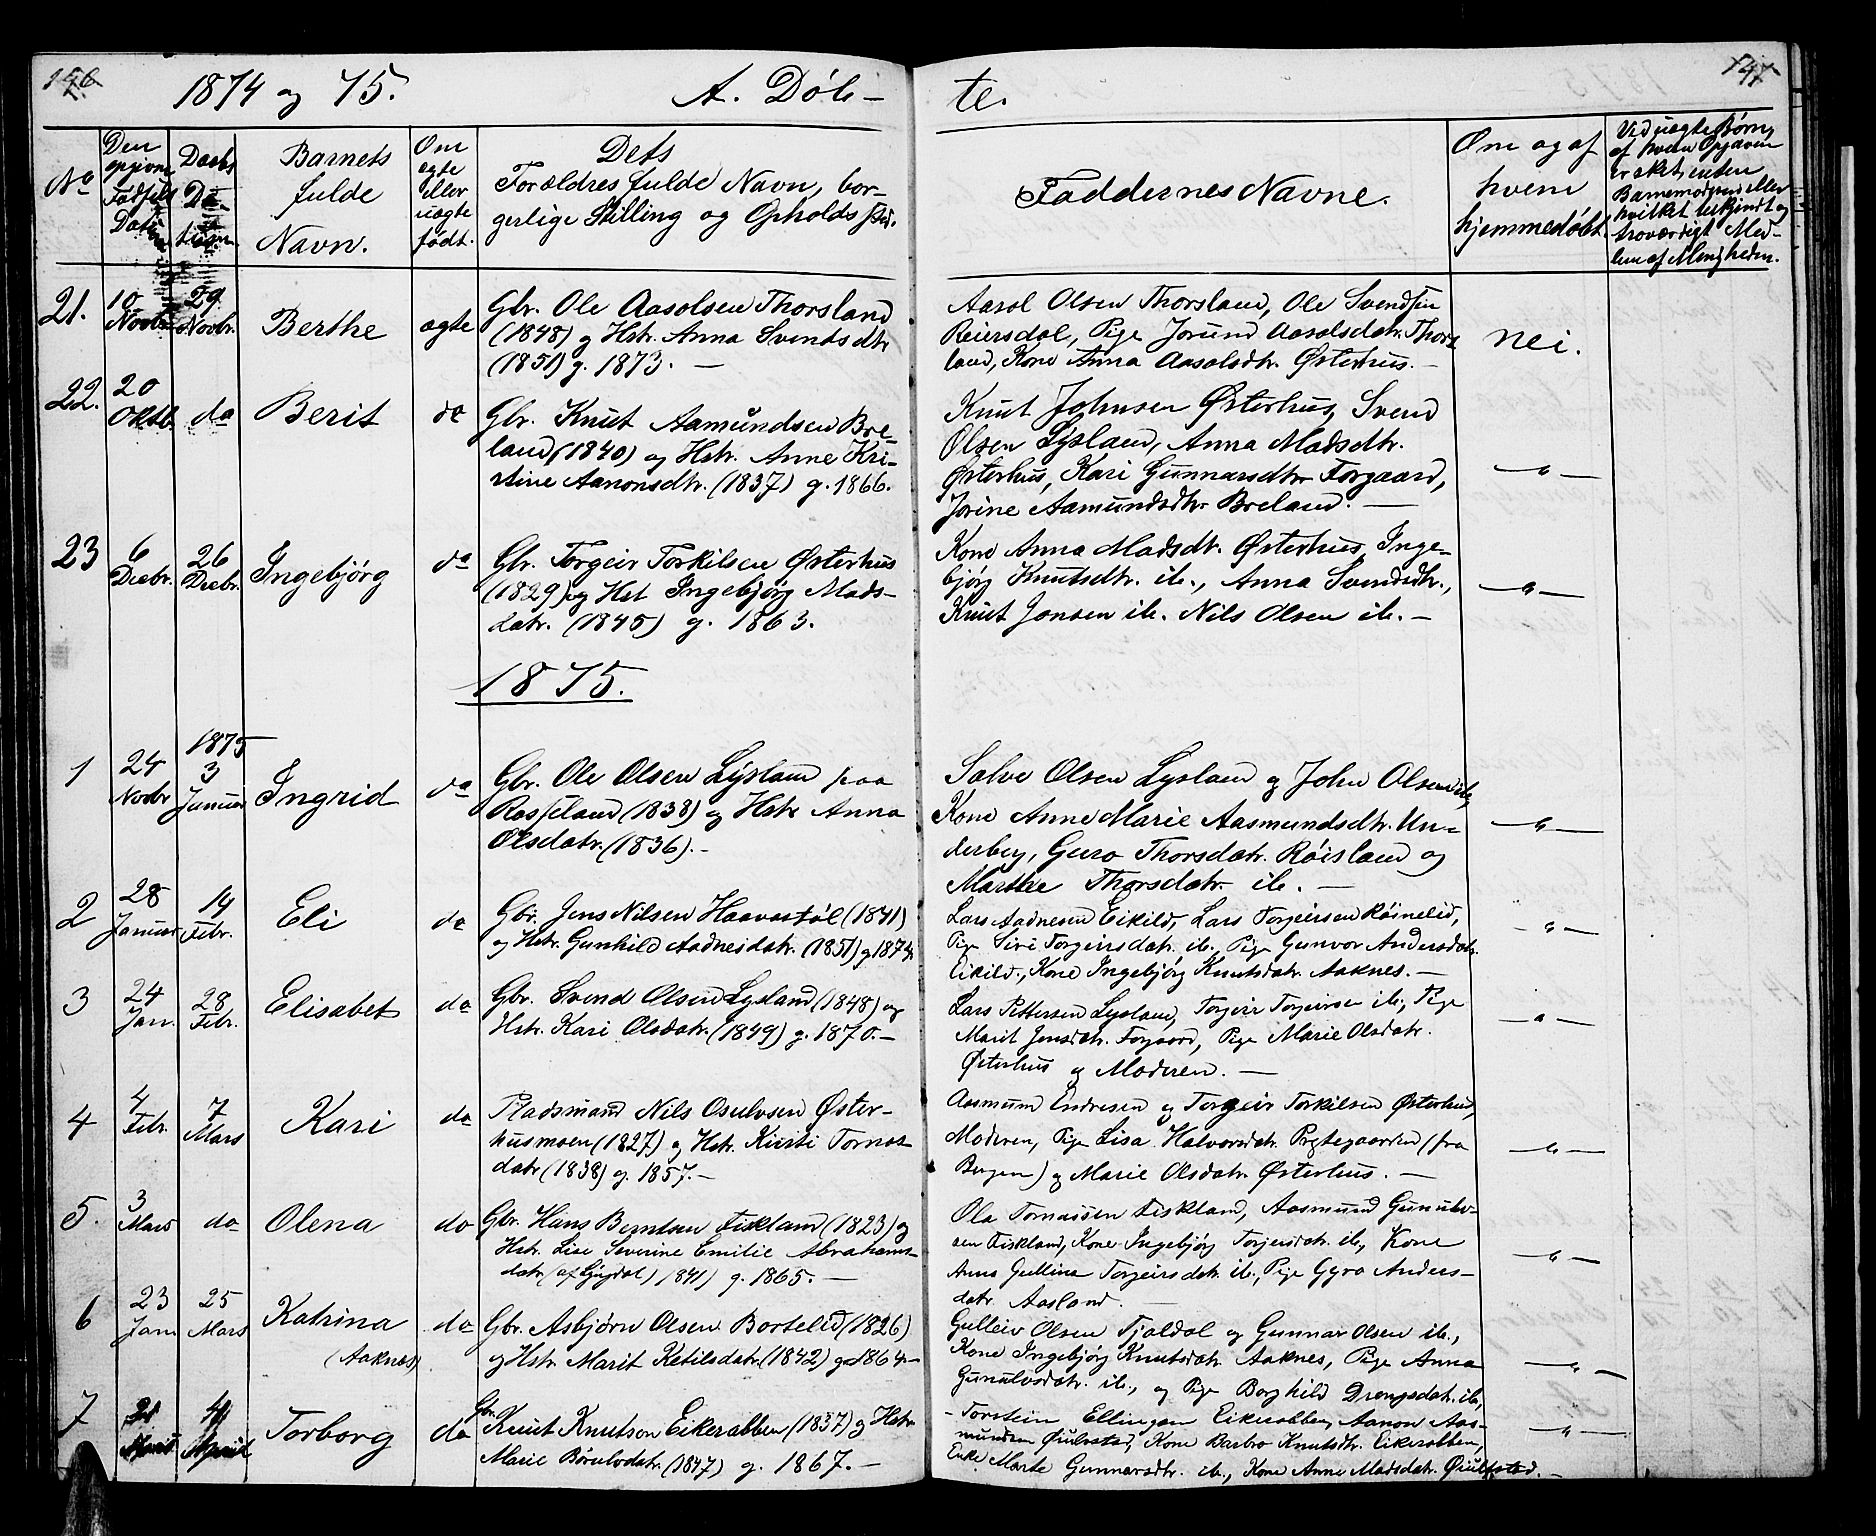 146
1874 og 75.
A. Døb-
te.
147
No
Den opgivne Fødsels Datum
Daabs Datum
Barnets fulde Navn.
Om ægte eller uægte født.
Dets Forældres fulde Navn, borgerlige Stilling og Opholdssted.
Faddernes Navne.
Om og af hvem hjemmedøbt.
Ved uægte Børn, af hvem Opgaven er sket, enten Barnemoderen eller hvilket bekjendt og troværdigt Medlem af Menigheden.
21.
10 Novbr.
29 Novbr.
Berthe
ægte
Gbr. Ole Aasolsen Thorsland
(1848) og Hstr. Anna Svendsdtr
(1851) g. 1873. —
Aasol Olsen Thorsland, Ole Svendsen
Reiersdal, Pige Jorund Aasolsdatr. Thors
land, Kone Anna Aasolsdtr. Østerhus. —
nei.
22.
20 Oktb.
do
Berit
do
Gbr. Knut Aamundsen Bre-
land (1840) og Hstr. Anne Kri-
stine Aanonsdtr. (1837) g. 1866.
Knut Johnsen Østerhus, Svend
Olsen Lysland, Anna Madsdtr.
Østerhus, Kari Gunnarsdtr Forgaard,
Jorine Aamundsdtr Breland. —
—"—
23
6 Decbr.
26 Decbr.
Ingebjørg
do
Gbr. Torgeir Torkilsen Østerhus
(1829) og Hst Ingebjørg Mads-
datr. (1845) g. 1863.
Kone Anna Madsdtr. Østerhus, Inge-
bjørg Knutsdtr. ib., Anna Svendsdtr.,
Knut Jonsen ib. Nils Olsen ib. —
—"—
1875.
1
24 Novbr
1875
3 Januar
Ingrid
do
Gbr. Ole Olsen Lysland paa
Rosseland (1838) og Hstr Anna
Olsdatr. (1836). —
Salve Olsen Lysland og John Olsen ib,
Kone Anne Marie Aasmundsdtr. Un-
derberg, Guro Thorsdatr. Røisland og
Marthe Thorsdatr ib. —
—"—
2
28 Januar
14 Febr.
Eli
do
Gbr. Jens Nilsen Haavorstøl (1841)
og Hstr. Gunhild Aadnesdatr. (1851) g 1874
Lars Aadnesen Eikild, Lars Torgeirsen Røinelid,
Pige Siri Torgeirsdatr. ib., Pige Gunvor Andersdatr.
Eikild., Kone Ingebjørg Knutsdatr. Aaknes. —
—"—
3
24 Jan.
28 Febr.
Elisabet
do
Gbr. Svend Olsen Lysland (1848) og
Hstr. Kari Olsdatr. (1849) g. 1870. —
Lars Pettersen Lysland, Torgeir Torgeirsen ib., Pige
Marit Jensdatr. Forgaard, Pige Marie Olsdatr.
Østerhus og Moderen. —
—"—
4
4 Febr.
7 Mars
Kari
do
Pladsmand Nils Osulvsen Øster-
husmoen (1827) og Hstr. Kirsti Tornes
datr (1838) g. 1857. —
Aasmund Endresen og Torgeir Torkilsen Østerhus,
Moderen, Pige Lisa Halvorsdatr. Prestegaarden (fra
Bergen) og Marie Olsdatr. Østerhus. —
—"—
5.
3 Mars
do
Olena
do
Gbr. Hans Berntsen Fiskland (1823) og
Hstr. Lise Severine Emilie Abrahams-
datr (af Lyngdal) 1841) g. 1865. —
Ola Tornassen Fiskland, Aasmund Gunulv-
sen Fiskland, Kone Ingebjørg Torjersdatr. ib., Kone
Anna Gulline Torgeirsdatr. ib., Pige Gyro Anders-
datr. Aasland. —
—"—
6
23 Jan
25 Mars
Katrina
(Aaknes)
do
Gbr. Asbjørn Olsen Bortelid (1826)
og Hstr. Marit Ketilsdatr. (1842) g. 1864. —
Gulleiv Olsen Fjaldal og Gunnar Olsen ib.,
Kone Ingebjørg Knutsdatr. Aaknes, Pige Anna
Gunulvsdatr. ib., og Pige Borghild Drengsdatr. ib.,
—"—
7
Marts
4 April
Torborg
do
Gbr. Knut Knutson Eikerabben (1837) og Hstr.
Marie Børulvdatr. (1847) g. 1867. —
- Torstein Ellingsen Eikerabben, Aanon Aas-
mundsen Øiulvstad, Kone Barbro Knutsdtr. Eikerabben,
Enke Marte Gunnarsdtr. ib., Kone Anne Madsdatr. Øiulfstad. —
—"—